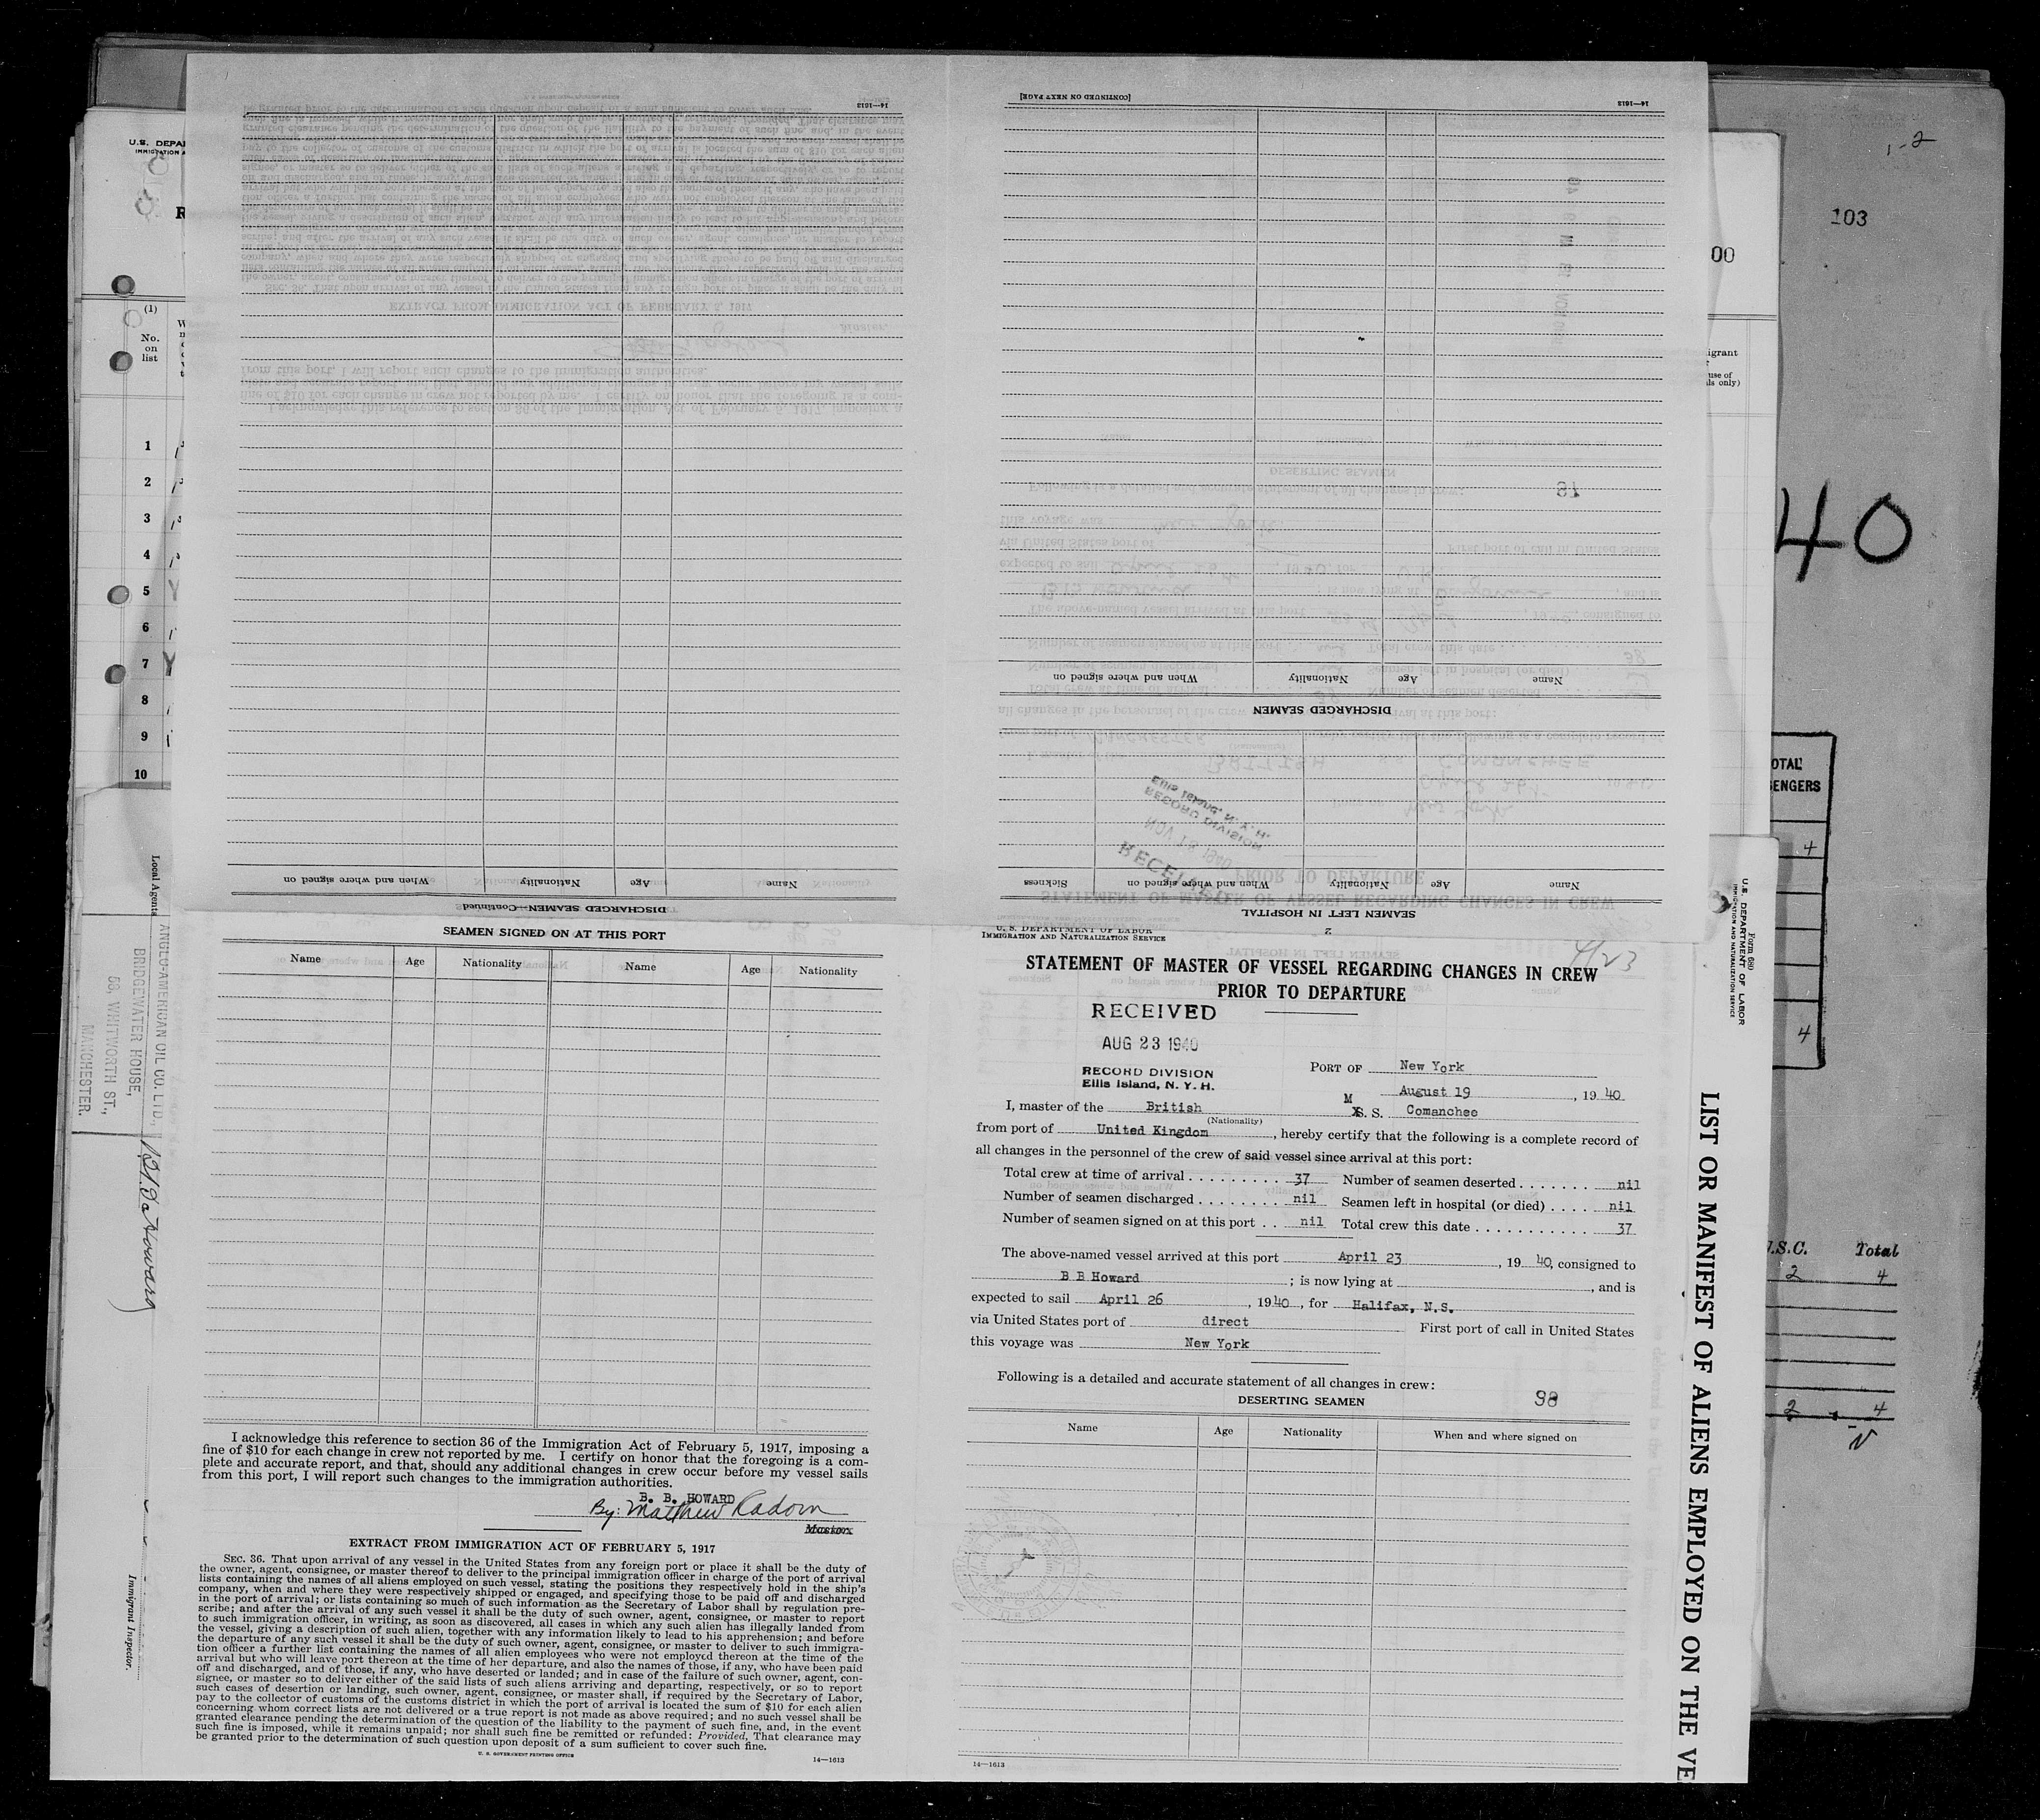 1-2
103
40
00
U.S. DEPAR
IMMIGRATION A
R
(1)
No.
on
list
1
2
3
4
5
6
7
8
9
10
igrant
use of
ls only)
OTAL
ENGERS
4
4
.S.C. Total
2 4
2 4
Local Agents
ANGLO-AMERICAN OIL CO. LTD.,
BRIDGEWATER HOUSE,
58, WHITWORTH ST.,
MANCHESTER.
Immigrant Inspector.
14—1613
DISCHARGED SEAMEN—Continued
Name Age Nationality When and where signed on
[CONTINUED ON NEXT PAGE]
14—1613
DISCHARGED SEAMEN
Name Age Nationality When and where signed on
2
SEAMEN LEFT IN HOSPITAL
Name Age Nationality When and where signed on Sickness
RECEIVED
NOV 18 1940
RECORD DIVISION
Ellis Island, N. Y. H.
SEAMEN SIGNED ON AT THIS PORT
Name Age Nationality Name Age Nationality
I acknowledge this reference to section 36 of the Immigration Act of February 5, 1917, imposing a
fine of $10 for each change in crew not reported by me. I certify on honor that the foregoing is a com-
plete and accurate report, and that, should any additional changes in crew occur before my vessel sails
from this port, I will report such changes to the immigration authorities.
B. B. HOWARD
By: Matthew Radom
Master.
EXTRACT FROM IMMIGRATION ACT OF FEBRUARY 5, 1917
SEC. 36. That upon arrival of any vessel in the United States from any foreign port or place it shall be the duty of
the owner, agent, consignee, or master thereof to deliver to the principal immigration officer in charge of the port of arrival
lists containing the names of all aliens employed on such vessel, stating the positions they respectively hold in the ship's
company, when and where they were respectively shipped or engaged, and specifying those to be paid off and discharged
in the port of arrival; or lists containing so much of such information as the Secretary of Labor shall by regulation pre-
scribe; and after the arrival of any such vessel it shall be the duty of such owner, agent, consignee, or master to report
to such immigration officer, in writing, as soon as discovered, all cases in which any such alien has illegally landed from
the vessel, giving a description of such alien, together with any information likely to lead to his apprehension; and before
the departure of any such vessel it shall be the duty of such owner, agent, consignee, or master to deliver to such immigra-
tion officer a further list containing the names of all alien employees who were not employed thereon at the time of the
arrival but who will leave port thereon at the time of her departure, and also the names of those, if any, who have been paid
off and discharged, and of those, if any, who have deserted or landed; and in case of the failure of such owner, agent, con-
signee, or master so to deliver either of the said lists of such aliens arriving and departing, respectively, or so to report
such cases of desertion or landing, such owner, agent, consignee, or master shall, if required by the Secretary of Labor,
pay to the collector of customs of the customs district in which the port of arrival is located the sum of $10 for each alien
concerning whom correct lists are not delivered or a true report is not made as above required; and no such vessel shall be
granted clearance pending the determination of the question of the liability to the payment of such fine, and, in the event
such fine is imposed, while it remains unpaid; nor shall such fine be remitted or refunded: Provided, That clearance may
be granted prior to the determination of such question upon deposit of a sum sufficient to cover such fine.
U. S. GOVERNMENT PRINTING OFFICE
14—1613
U. S. DEPARTMENT OF LABOR
IMMIGRATION AND NATURALIZATION SERVICE
4/23
STATEMENT OF MASTER OF VESSEL REGARDING CHANGES IN CREW
PRIOR TO DEPARTURE
RECEIVED
AUG 23 1940
RECORD DIVISION
Ellis Island, N. Y. H.
PORT OF New York
August 19, 1940
I, master of the British M S. S. Comanchee
(Nationality)
from port of United Kingdom, hereby certify that the following is a complete record of
all changes in the personnel of the crew of said vessel since arrival at this port:
Total crew at time of arrival . . . . . . . . . 37 Number of seamen deserted . . . . . . . nil
Number of seamen discharged . . . . . . . nil Seamen left in hospital (or died) . . . . nil
Number of seamen signed on at this port . . nil Total crew this date . . . . . . . . . . . 37
The above-named vessel arrived at this port April 23, 1940, consigned to
B B Howard; is now lying at , and is
expected to sail April 26, 1940, for Halifax, N.S.
via United States port of direct First port of call in United States
this voyage was New York
Following is a detailed and accurate statement of all changes in crew:
98
DESERTING SEAMEN
Name Age Nationality When and where signed on
14—1613
Form 680
U.S. DEPARTMENT OF LABOR
IMMIGRATION AND NATURALIZATION SERVICE
LIST OR MANIFEST OF ALIENS EMPLOYED ON THE VE